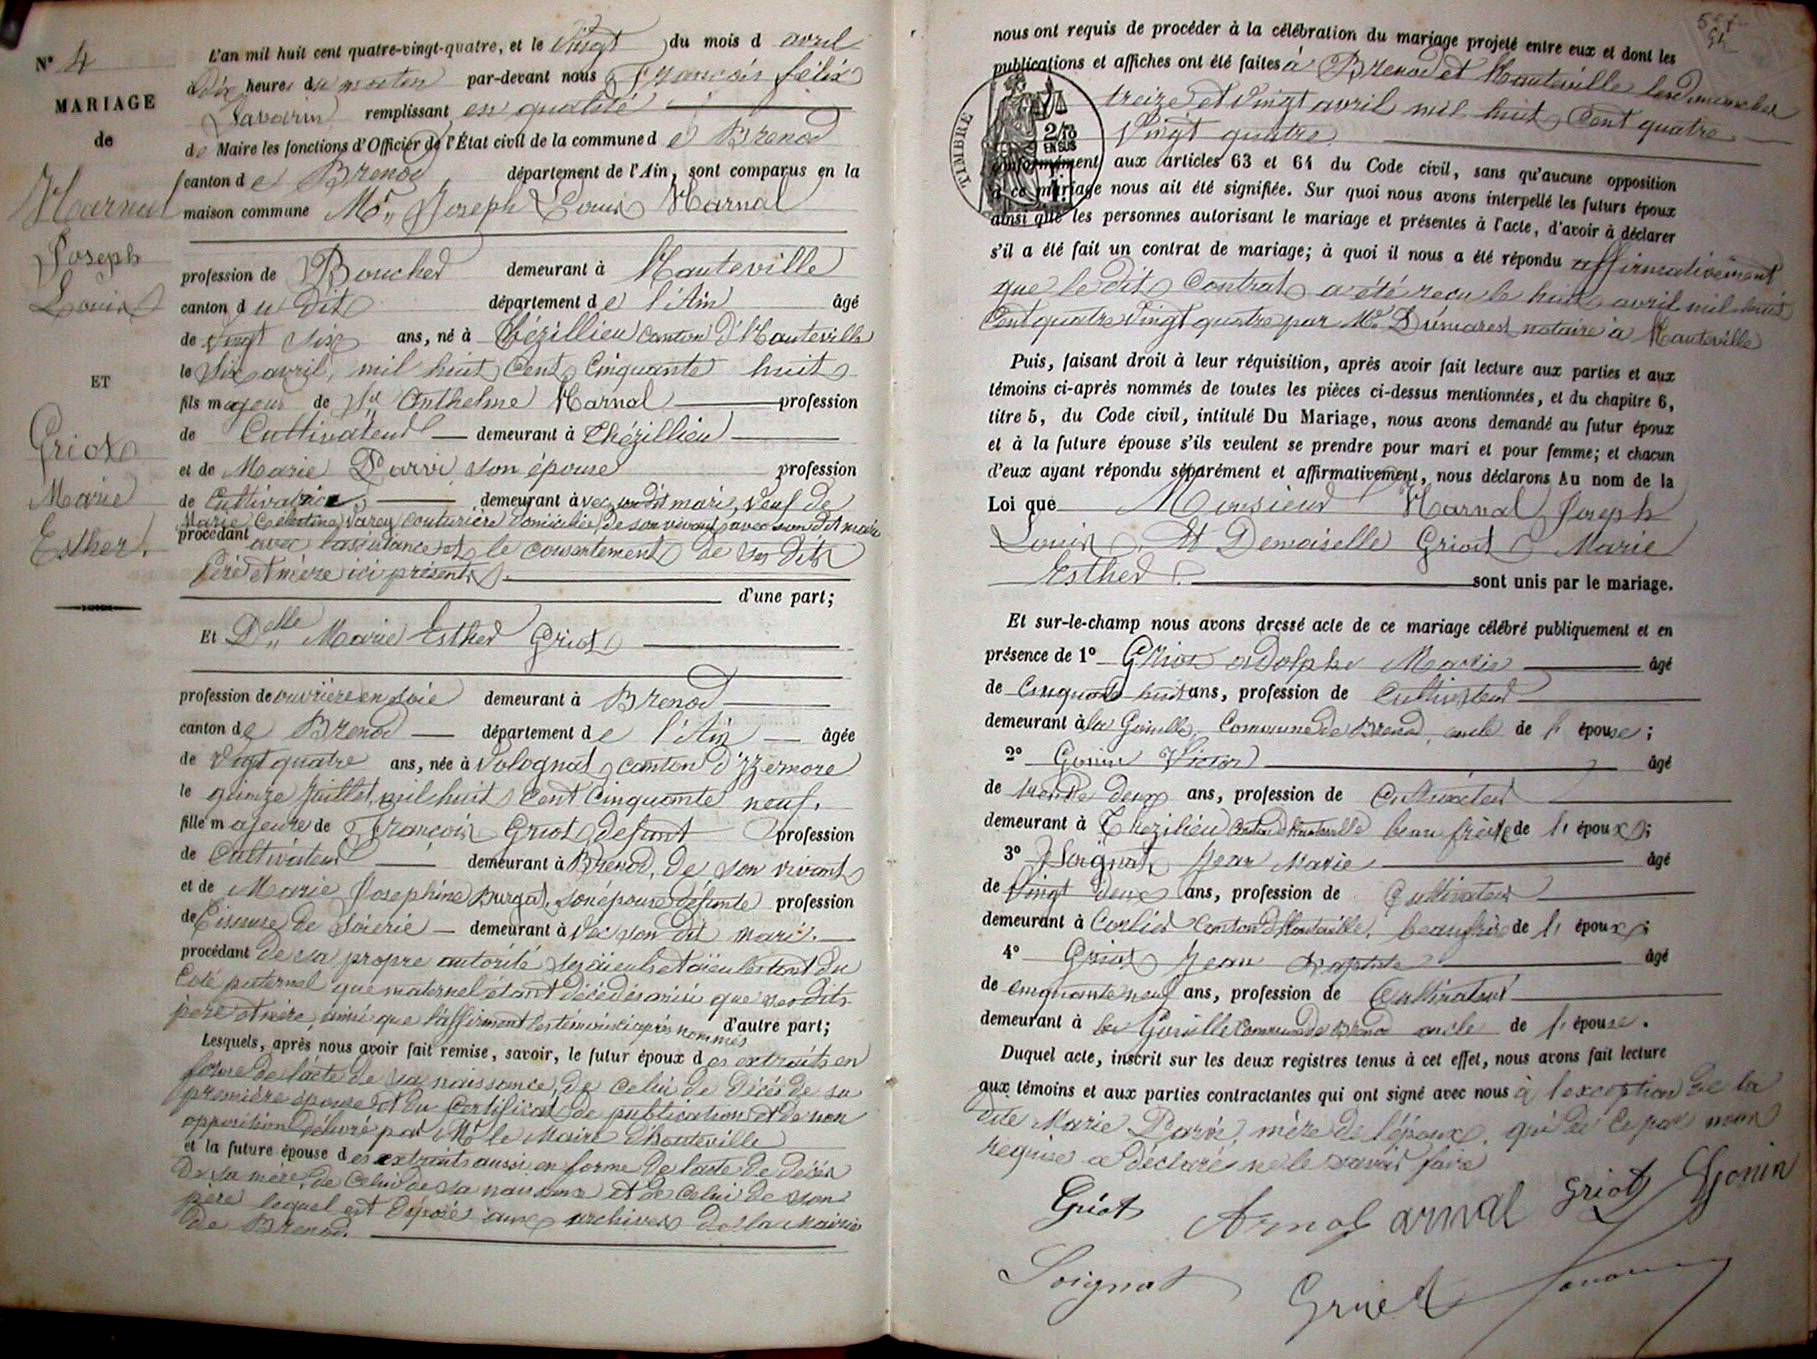 N° 4
MARIAGE
de
Harnal
Joseph
Louis
ET
Griot
Marie
Esther.
L'an mil huit cent quatre-vingt-quatre, et le Vingt du mois d avril
à dix heures du matin par-devant nous François félix
Savarin remplissant en qualité
de Maire les fonctions d'Officier de l'État civil de la commune d e Brenod
canton d e Brenod département de l'Ain, sont comparus en la
maison commune Mr Joseph Louis Harnal
profession de Boucher demeurant à Hauteville
canton d u dit département d e l'Ain âgé
de vingt six ans, né à Thézillieu canton d'Hauteville
le Six avril, mil huit cent cinquante huit
fils majeur de Anthelme Harnal profession
de Cultivateur demeurant à Thézillieu
et de Marie Parvi son épouse profession
de cultivatrice demeurant avec son dit mari, veuf de
Marie Célestine Varey couturière domiciliée de son vivant avec son dit mari
procédant avec l'assistance et le consentement de ses dits
Père et mère ici présents.
d'une part;
Et Delle Marie Esther Griot
profession de ouvrière en soie demeurant à Brenod
canton d e Brenod département d e l'Ain âgée
de Vingt quatre ans, née à Volognat canton d'Izernore
le quinze Juillet, mil huit cent cinquante neuf.
fille majeure de François Griot défunt profession
de Cultivateur demeurant à Brenod, de son vivant
et de Marie Joséphine Burgat, son épouse défunte profession
de Tisseuse de Soierie demeurant avec son dit mari.
procédant de sa propre autorité ses aïeuls et aïeules tant du
Coté paternel que maternel étant décédés ainsi que ses dits
père et mère, ainsi que l'affirment les témoins ci après nommés d'autre part;
Lesquels, après nous avoir fait remise, savoir, le futur époux d es extraits en
forme de l'acte de sa naissance, de celui de décès de sa
première épouse et du Certificat de publication et de non
opposition délivré par Mr le Maire d'hauteville
et la future épouse d es extraits aussi en forme de l'acte de décès
de sa mère, de celui de sa naissance et de celui de son
père lequel est déposé aux archives de la mairie
de Brenod.
nous ont requis de procéder à la célébration du mariage projeté entre eux et dont les
publications et affiches ont été faites à Brenod et Hauteville les dimanches
treize et vingt avril mil huit cent quatre
Vingt quatre.
TIMBRE
2/10
EN SUS
conformément aux articles 63 et 64 du Code civil, sans qu'aucune opposition
à ce mariage nous ait été signifiée. Sur quoi nous avons interpellé les futurs époux
ainsi que les personnes autorisant le mariage et présentes à l'acte, d'avoir à déclarer
s'il a été fait un contrat de mariage; à quoi il nous a été répondu affirmativement
que le dit Contrat a été reçu le huit avril mil huit
Cent quatre Vingt quatre par Me Dumarest notaire à Hauteville
Puis, faisant droit à leur réquisition, après avoir fait lecture aux parties et aux
témoins ci-après nommés de toutes les pièces ci-dessus mentionnées, et du chapitre 6,
titre 5, du Code civil, intitulé Du Mariage, nous avons demandé au futur époux
et à la future épouse s'ils veulent se prendre pour mari et pour femme; et chacun
d'eux ayant répondu séparément et affirmativement, nous déclarons Au nom de la
Loi que Monsieur Harnal Joseph
Louis Et Demoiselle Griot Marie
Esther sont unis par le mariage.
Et sur-le-champ nous avons dressé acte de ce mariage célébré publiquement et en
présence de 1° Griot adolphe Marie âgé
de Cinquante huit ans, profession de Cultivateur
demeurant à Commune de Brenod, oncle de l' épouse;
2° Gonin Victor âgé
de trente deux ans, profession de Cultivateur
demeurant à Thézilieu canton d'hauteville beau frère de l'époux;
3° Soignat Jean Marie âgé
de Vingt deux ans, profession de Cultivateur
demeurant à Corlier Canton d'Hauteville, beau frère de l'époux;
4° Griot Jean Baptiste âgé
de cinquante neuf ans, profession de Cultivateur
demeurant à Commune de Brenod oncle de l'épouse.
Duquel acte, inscrit sur les deux registres tenus à cet effet, nous avons fait lecture
aux témoins et aux parties contractantes qui ont signé avec nous à l'exception de la
dite Marie Parvi, mère de l'époux, qui de ce par nous
requise a déclaré ne le savoir faire
Griot Arnal arnal Griot Gonin
Soignat Griot Savarin